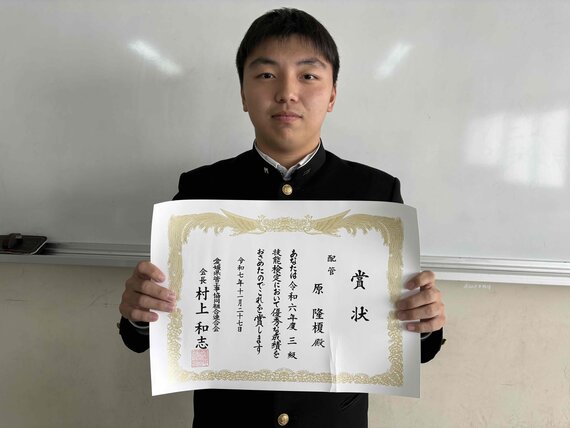 賞状
配管
原 隆榎殿
あなたは令和六年度三級
技能検定において優秀な成績を
おさめたのでこれを賞します
令和七年十一月二十七日
愛媛県管工事協同組合連合会
会長 村上 和志